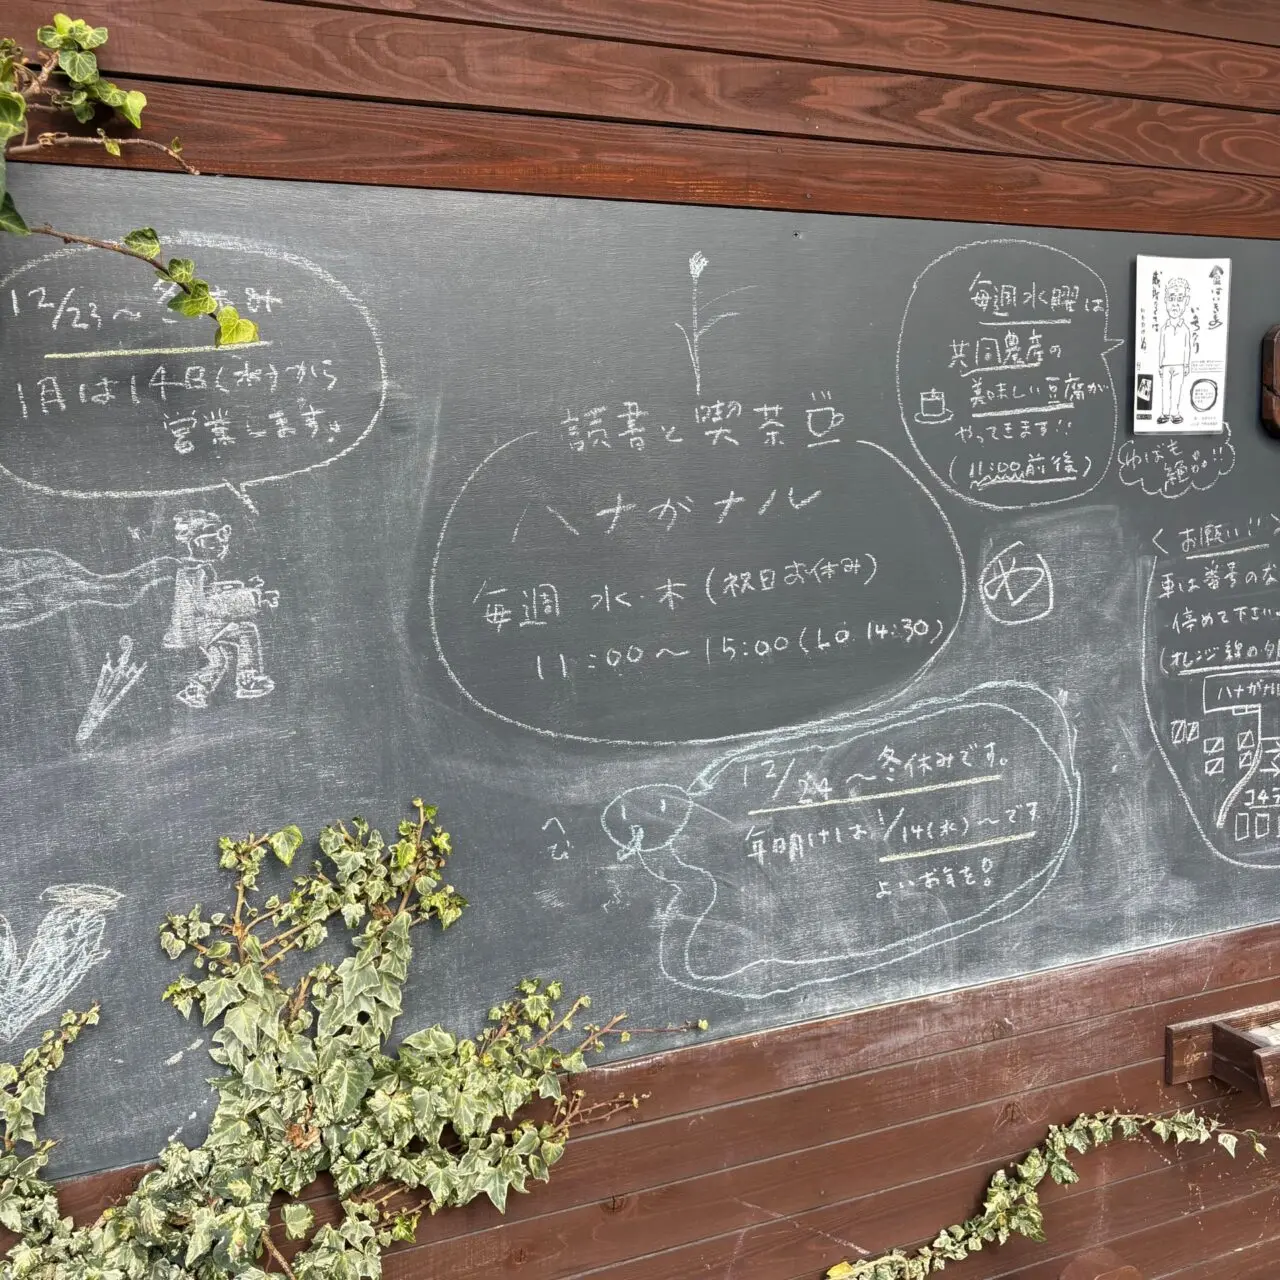 12/23〜冬休み
1月は14日(水)から
営業します。
読書と喫茶
ハナがナル
毎週 水・木(祝日お休み)
11:00〜15:00(LO 14:30)
12/24〜冬休みです。
年明けは、1/14(水)〜です
よいお年を。
へび
毎週水曜は
共同農産の
美味しい豆腐が
やってきます!!
(11:00前後)
ゆばも
絶品!!
<お願い!!>
車は番号のな
停めて下さい
(オレンジ線の外
ハナがナル